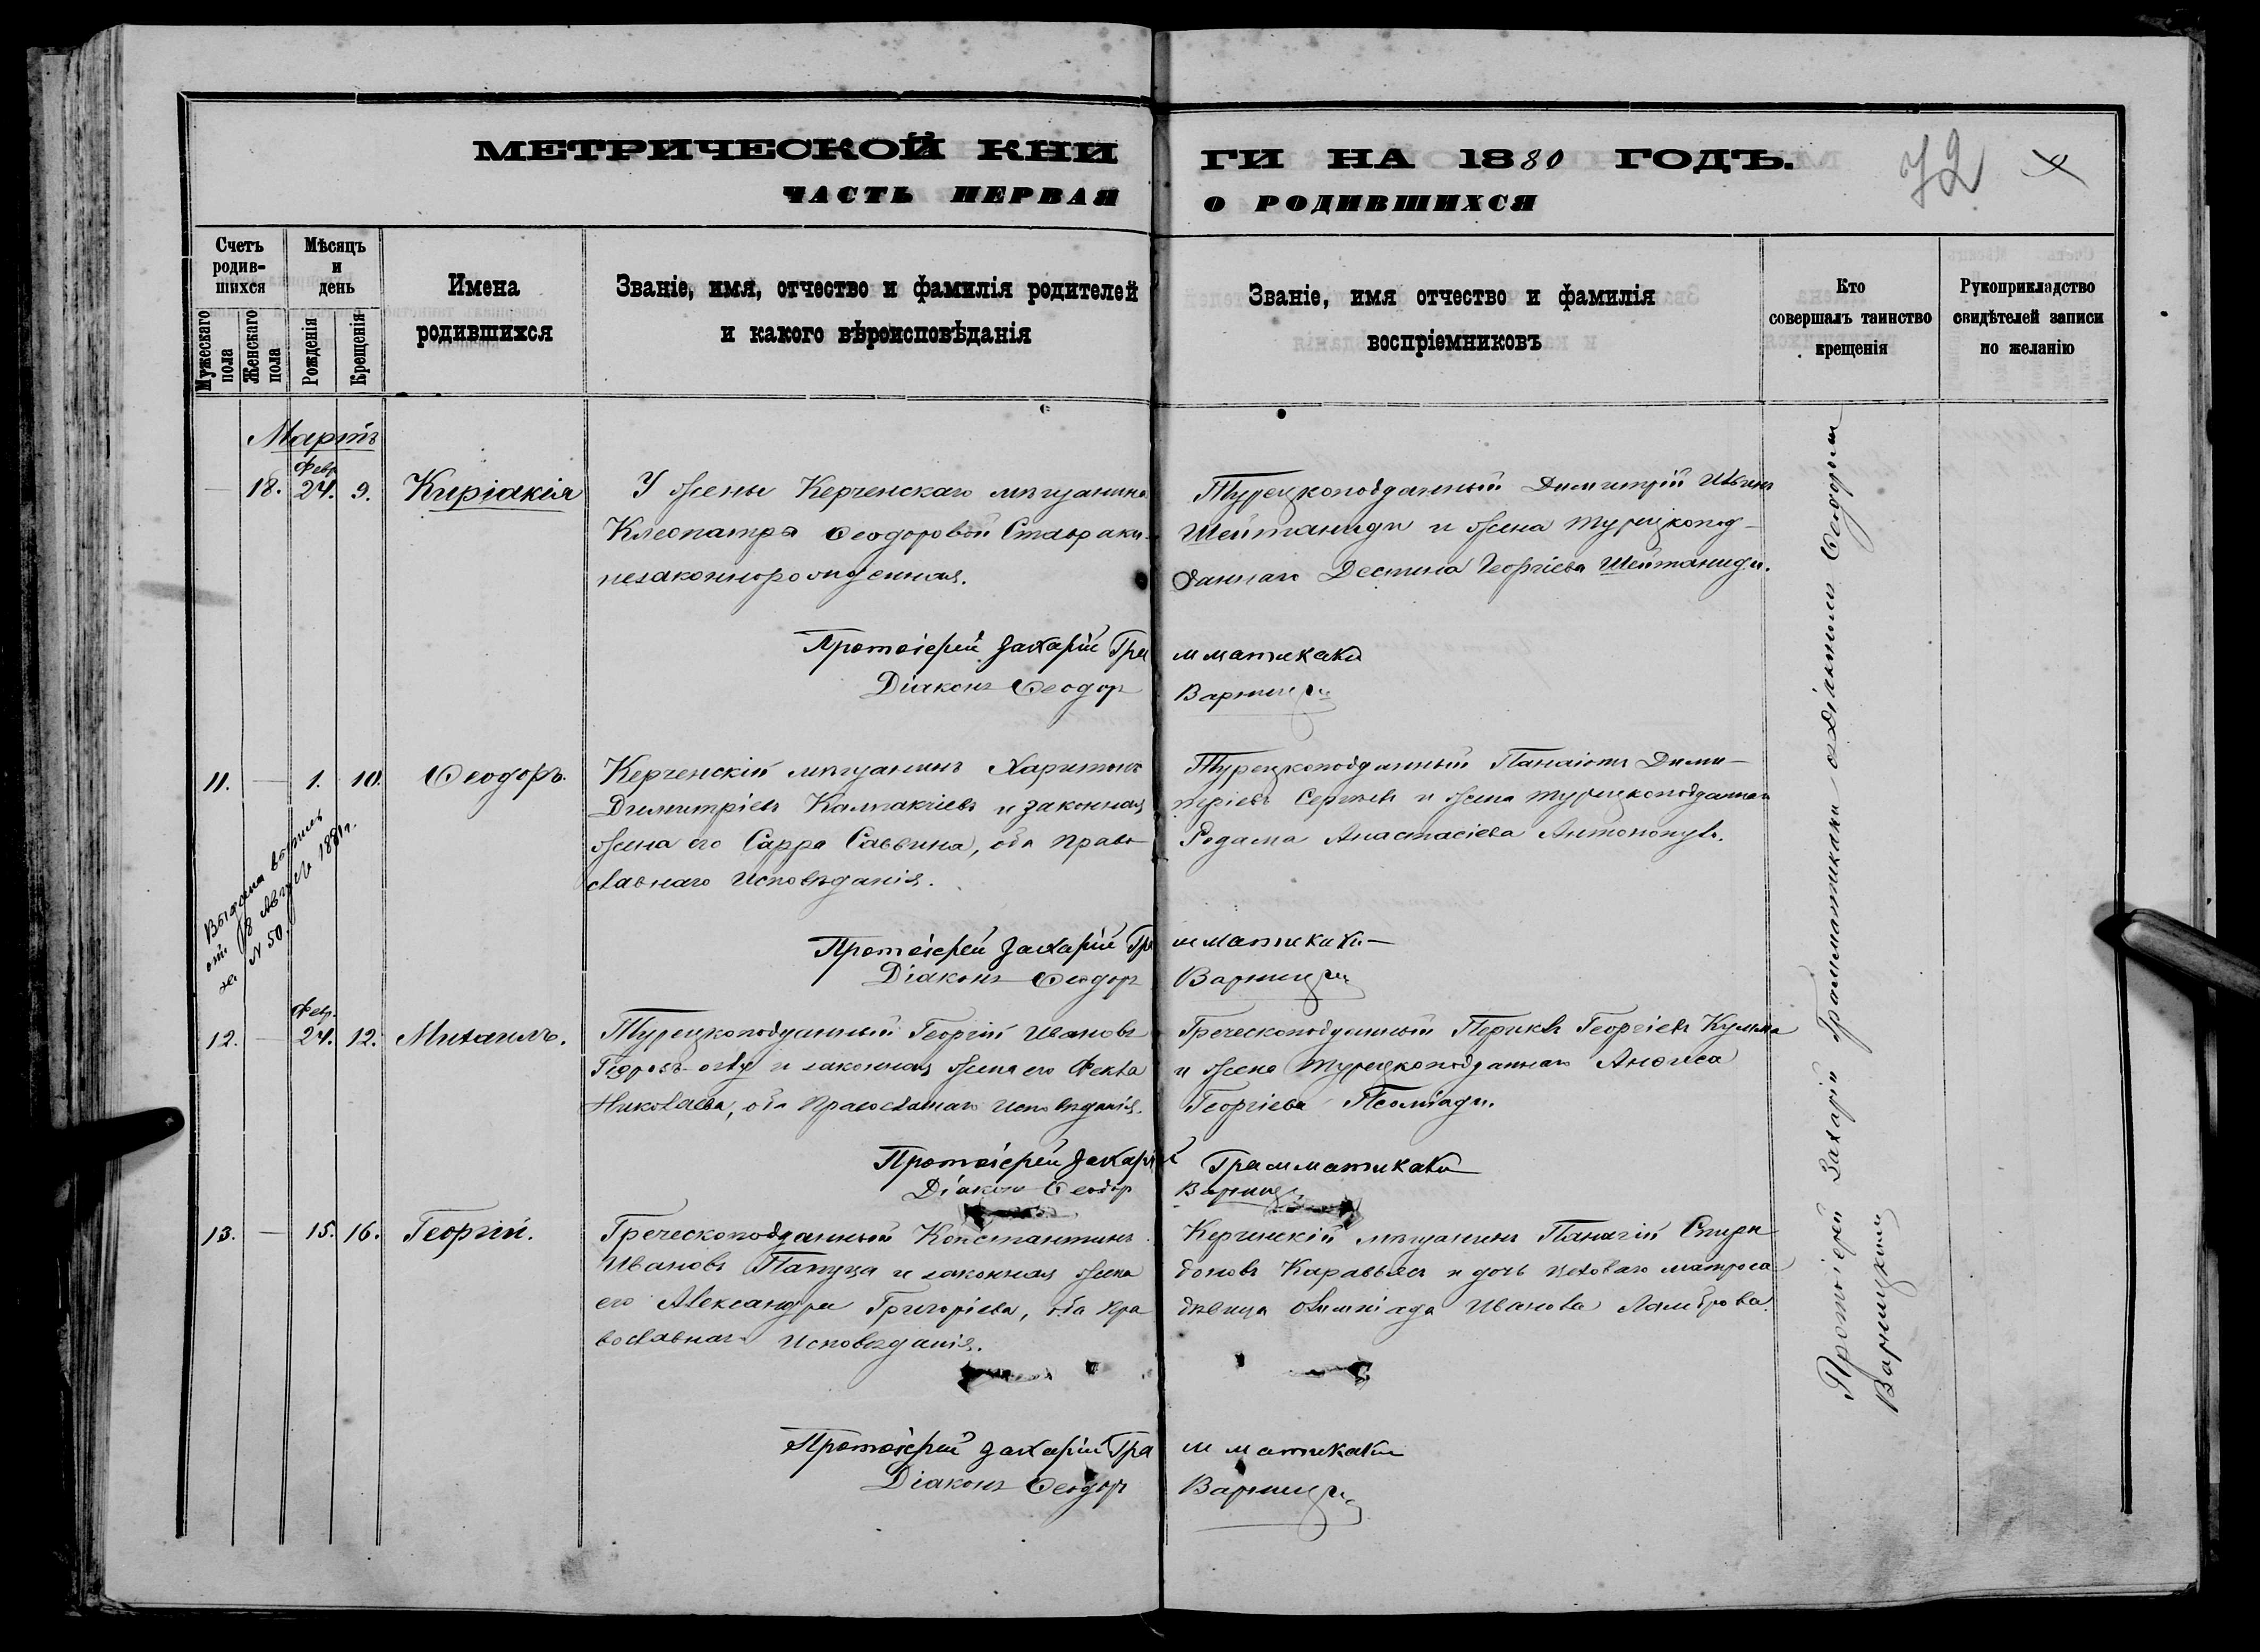 МЕТРИЧЕСКОЙ КНИГИ НА 1880 ГОДЪ.
72
ЧАСТЬ ПЕРВАЯ О РОДИВШИХСЯ
Счетъ родив-шихся
Мужескаго пола
Женскаго пола
Мѣсяцъ и день
Рожденія
Крещенія
Имена родившихся
Званіе, имя, отчество и фамилія родителей
и какого вѣроисповѣданія
Званіе, имя отчество и фамилія
воспріемниковъ
Кто
совершалъ таинство
крещенія
Рукоприкладство
свидѣтелей записи
по желанію
Мартъ
Февр.
— 18. 24. 9. Киріакія
У жены Керченскаго мѣщанина
Клеопатры Ѳеодоровой Ставраки
незаконнорожденная.
Турецкоподданный Димитрій Иванъ
Шейтаниди и жена турецкопод-
даннаго Деспина Георгіева Шейтаниди.
Протоіерей Захарій Грамматикаки
Діаконъ Ѳеодоръ Варницкій
11. — 1. 10. Ѳеодоръ.
Керченскій мѣщанинъ Харитонъ
Димитріевъ Калпакчіевъ и законная
жена его Сарра Саввина, оба право-
славнаго исповѣданія.
Турецкоподданный Панаіотъ Дими-
тріевъ и жена турецкоподданнаго
Родама Анастасіева Антонопулъ.
Выдана
отъ 18 Август 1881 г.
за N 50.
Протоіерей Захарій Грамматикаки
Діаконъ Ѳеодоръ Варницкій
Февр.
12. — 24. 12. Михаилъ.
Турецкоподданный Георгій Ивановъ
оглу и законная жена его Ѳекла
Николаева, оба православнаго исповѣданія.
Греческоподданный Периклъ Георгіевъ
и жена турецкоподданнаго
Георгіева
Протоіерей Захарій Грамматикаки
Діаконъ Ѳеодоръ Варницкій
13. — 15. 16. Георгій.
Греческоподданный Константинъ
Ивановъ Папуца и законная жена
его Александра Григоріева, оба пра
вославнаго исповѣданія.
Керченскій мѣщанинъ Панагій Спири
доновъ и дочь матроса
дѣвица Олимпіада Иванова Ламброва.
Протоіерей Захарій Грамматикаки
Діаконъ Ѳеодоръ Варницкій
Протоіерей Захарій Грамматикаки съ Діакономъ Ѳеодоромъ
Варницкимъ